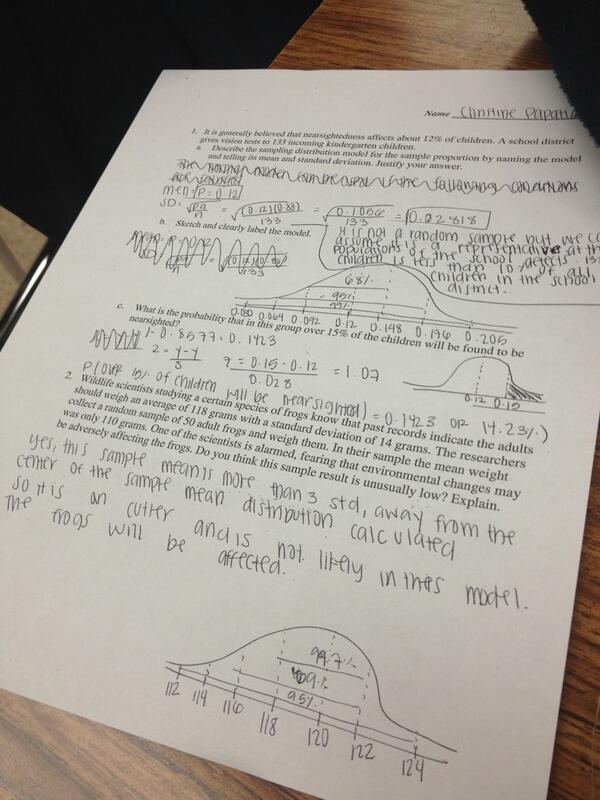 Name Christine
1. It is generally believed that nearsightedness affects about 12% of children. A school district
gives vision tests to 133 incoming kindergarten children.
a. Describe the sampling distribution model for the sample proportion by naming the model
and telling its mean and standard deviation. Justify your answer.
P = 0.12
SD = √pq/n = √(0.12)(0.88)/133 = √0.1056/133 = 0.02818
It is not a random sample but we
assume it is a representative
populations of the school
children is less
than 10% of all
children in the school
district.
b. Sketch and clearly label the model.
68%
95%
0.064 0.092 0.12 0.148 0.176 0.205
c. What is the probability that in this group over 15% of the children will be found to be
nearsighted?
1-0.8577= 0.1423
z = y-y/s z = 0.15-0.12/0.028 = 1.07
0.12 0.15
P(over 15% of children will be nearsighted) = 0.1423 or 14.23%)
2. Wildlife scientists studying a certain species of frogs know that past records indicate the adults
should weigh an average of 118 grams with a standard deviation of 14 grams. The researchers
collect a random sample of 50 adult frogs and weigh them. In their sample the mean weight
was only 110 grams. One of the scientists is alarmed, fearing that environmental changes may
be adversely affecting the frogs. Do you think this sample result is unusually low? Explain.
yes, this sample mean is more than 3 std, away from the
center of the sample mean distribution calculated
so it is an and is not likely in this model.
The frogs will be affected.
99.7%
95%
112 114 116 118 120 122 124